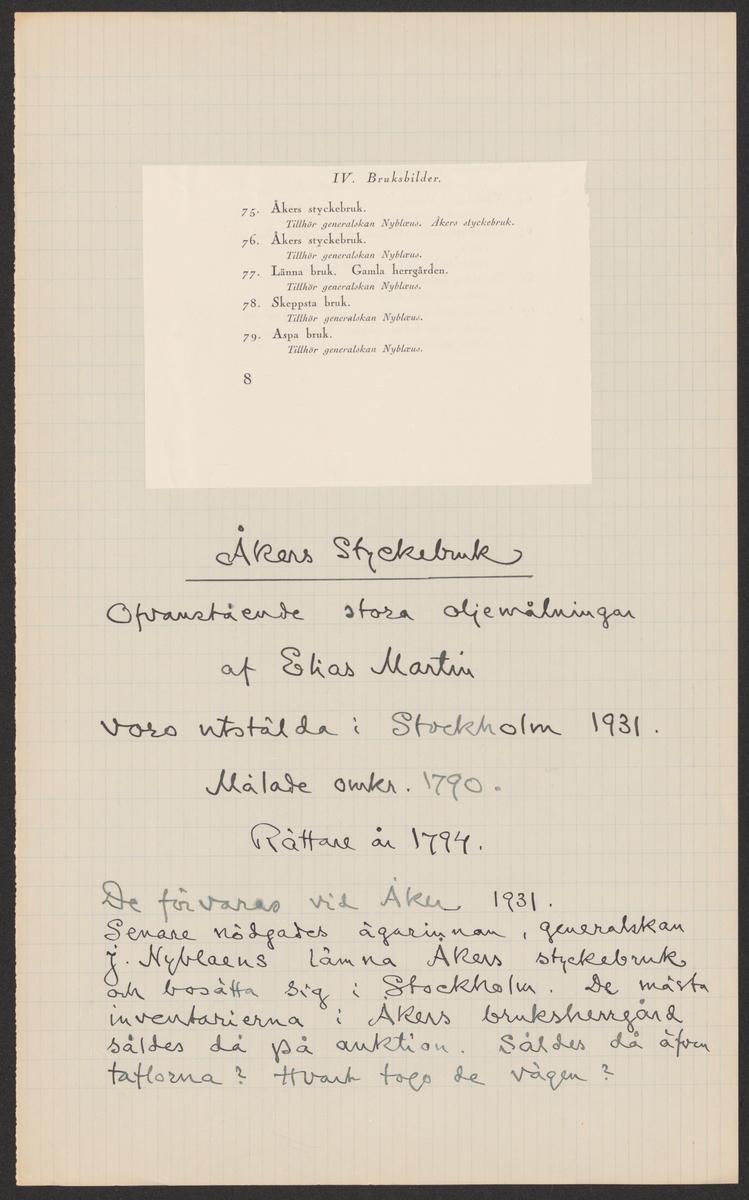 IV. Bruksbilder.
75. Åkers styckebruk.
Tillhör generalskan Nyblæus. Åkers styckebruk.
76. Åkers styckebruk.
Tillhör generalskan Nyblæus.
77. Länna bruk. Gamla herrgården.
Tillhör generalskan Nyblæus.
78. Skeppsta bruk.
Tillhör generalskan Nyblæus.
79. Aspa bruk.
Tillhör generalskan Nyblæus.
8
Åkers Styckebruk
Ofvanstående stora oljemålningar
af Elias Martin
voro utstälda i Stockholm 1931.
Målade omkr. 1790.
Rättare år 1794.
De förvaras vid Åker 1931.
Senare nödgades ägarinnan, generalskan
J. Nyblaeus lämna Åkers styckebruk
och bosätta sig i Stockholm. De mästa
inventarierna i Åkers bruksherrgård
såldes då på auktion. Såldes då äfven
taflorna? Hvart togo de vägen?